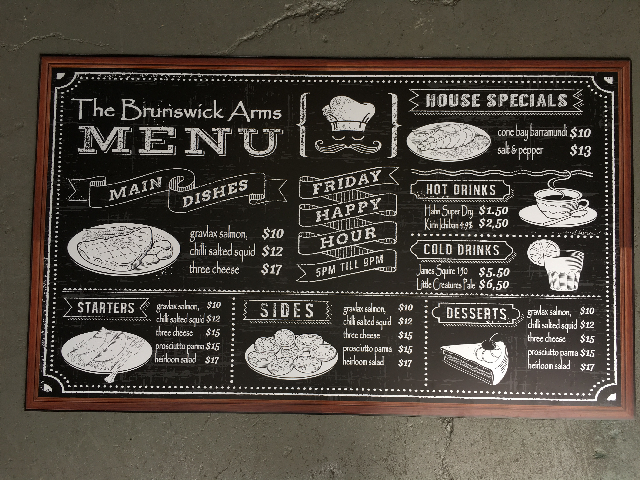 The Brunswick Arms
MENU
HOUSE SPECIALS
cone bay barramundi $10
salt & pepper $13
MAIN DISHES
gravlax salmon, $10
chilli salted squid $12
three cheese $17
FRIDAY
HAPPY
HOUR
5PM TILL 9PM
HOT DRINKS
Hahn Super Dry $1.50
Kirin Ichiban $2,50
COLD DRINKS
James Squire 150 $5.50
Little Creatures Pale $6,50
STARTERS
gravlax salmon, $10
chilli salted squid $12
three cheese $15
prosciutto parma $15
heirloom salad $17
SIDES
gravlax salmon, $10
chilli salted squid $12
three cheese $15
prosciutto parma $15
heirloom salad $17
DESSERTS
gravlax salmon, $10
chilli salted squid $12
three cheese $15
prosciutto parma $15
heirloom salad $17